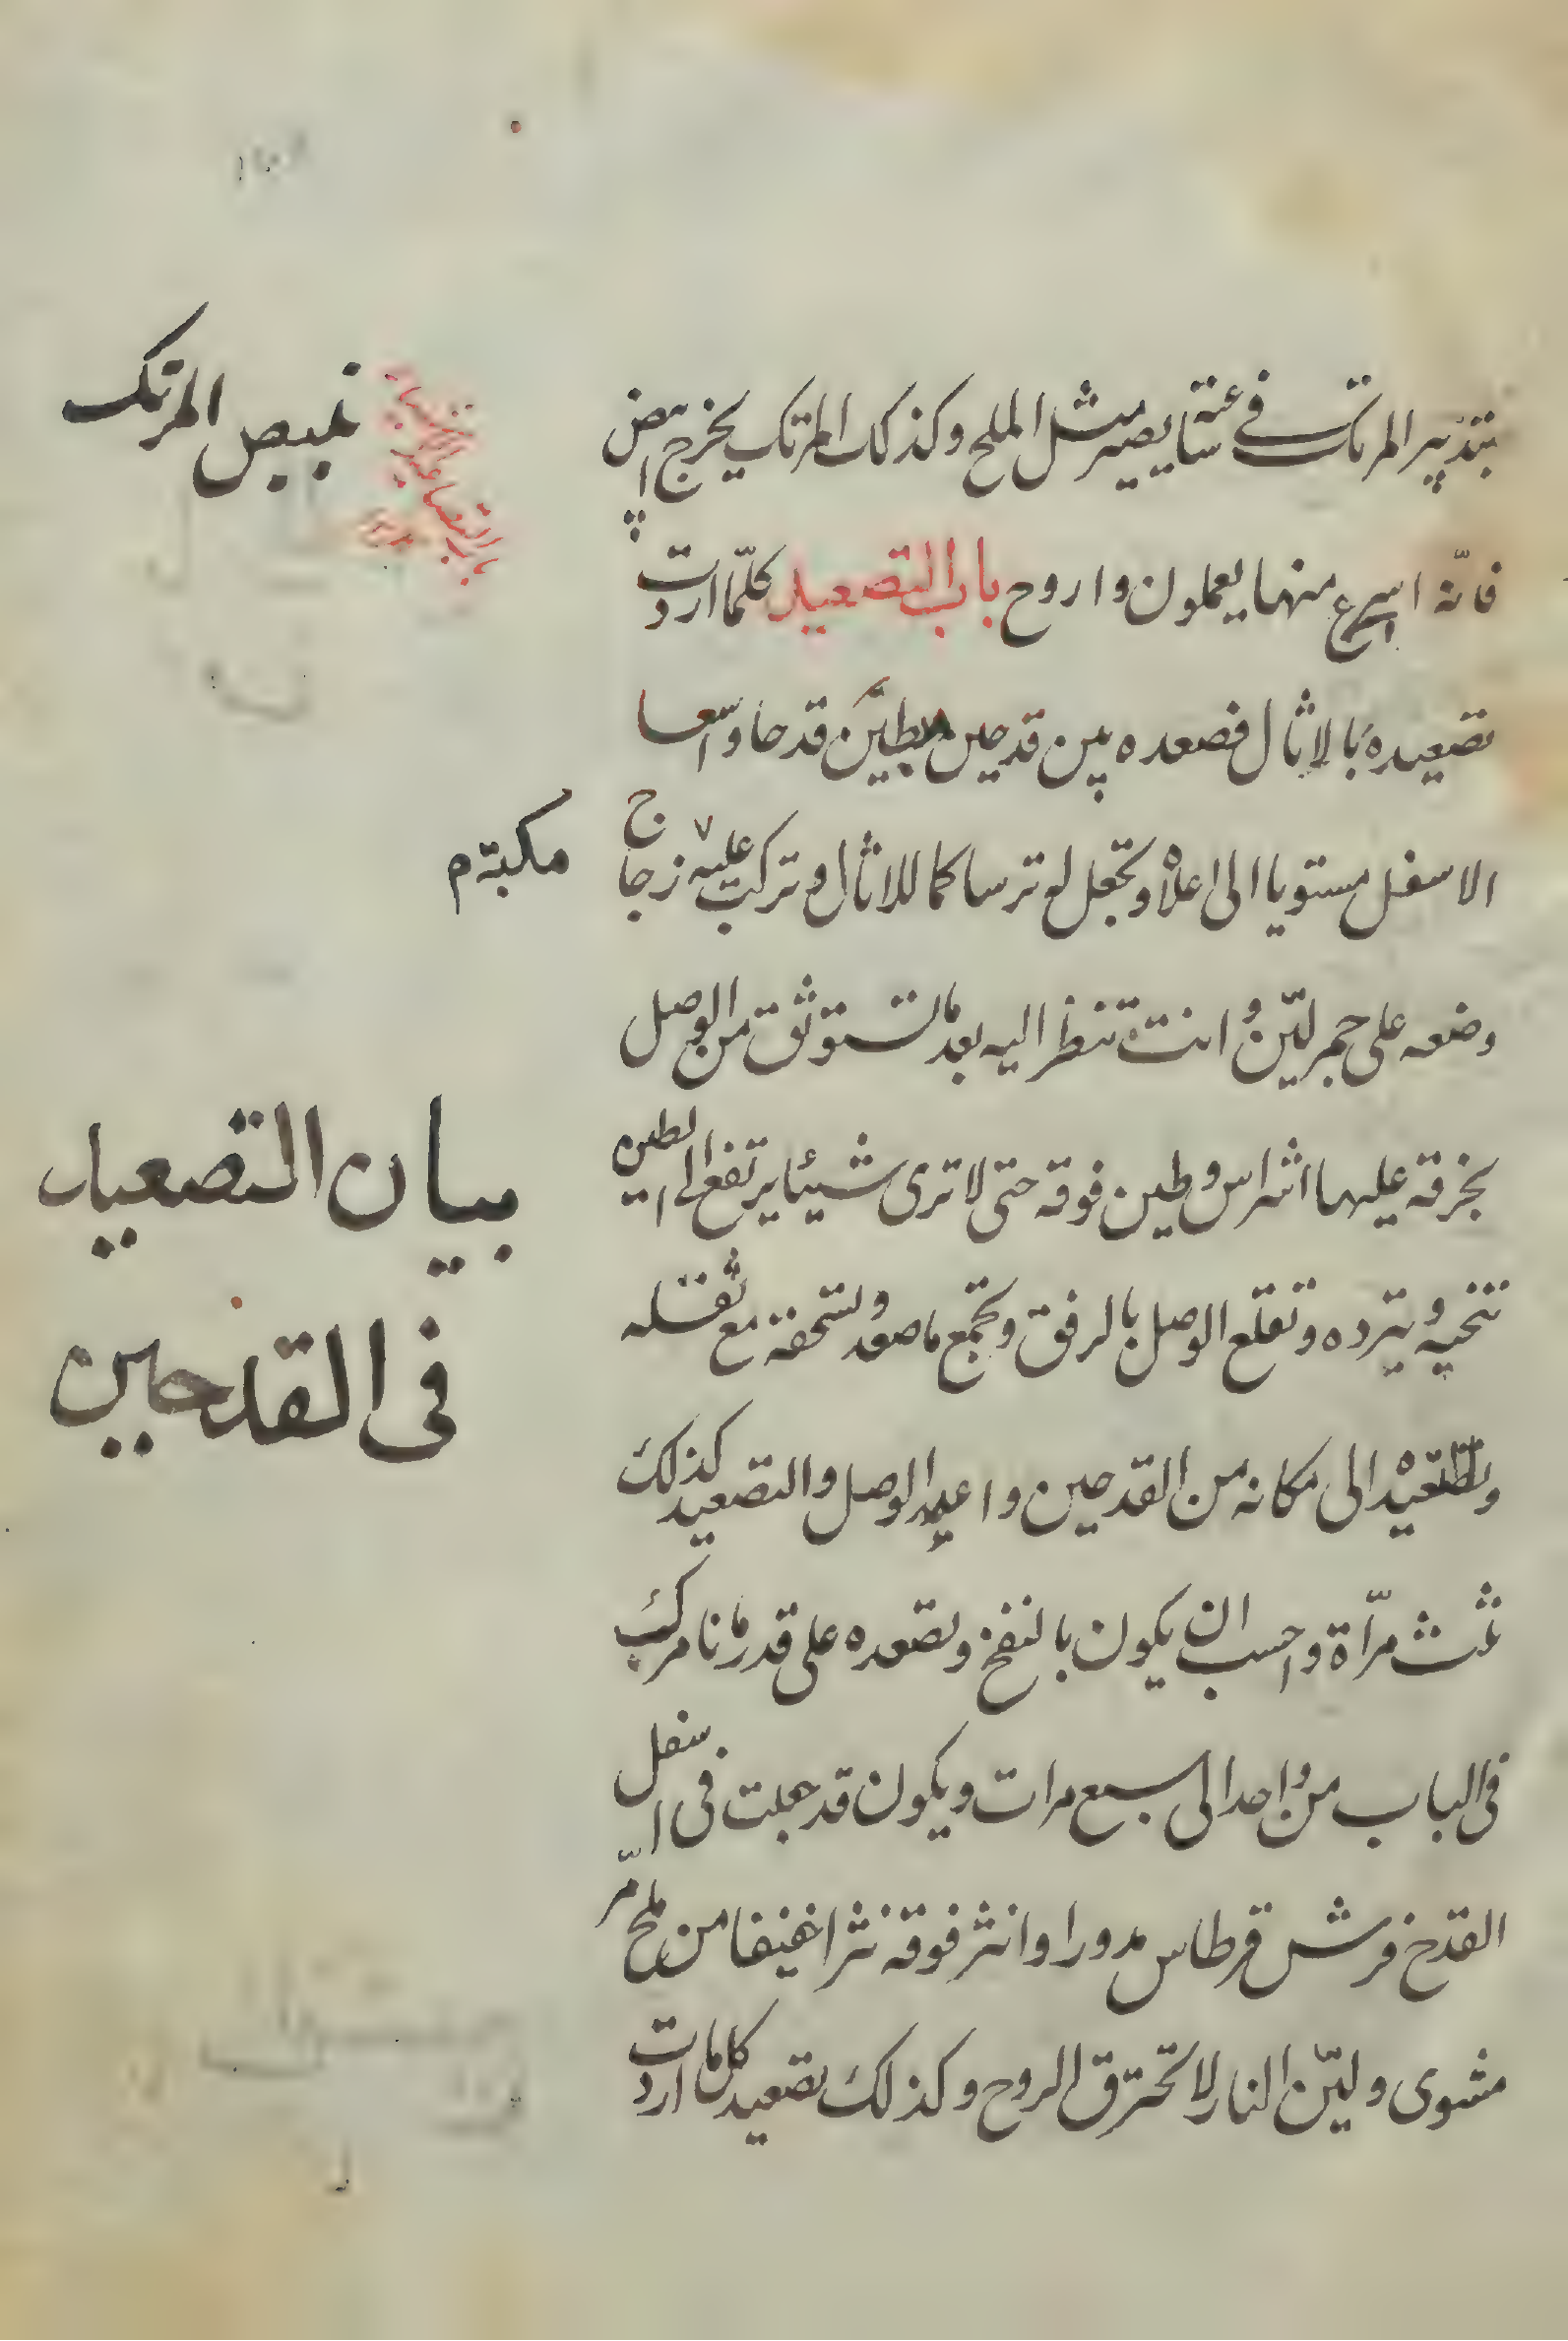 بتدبير المرتك في ستاعته يصير مثل الملح وكذلك المرتك يخرج ابيض
فانّه اسرع منها يعملون واروح باب التصعيد كلّما اردت
تصعيده بالاثال فصعده بين قدحين مطيّن قدحا واسعا
الاسفل مستويا الى اعلاه وتجعل له ترسا كما للاثال وتركب عليه زجاج
وضعه على جمر ليّن وانت تنظر اليه بعد ما تستوثق من الوصل
بخرقة عليها اشراس وطين فوقه حتى لا ترى شيئا يرتفع الى الطين
تنحيه وتبرده وتقلع الوصل بالرفق وتجمع ما صعد وتسحقه مع ثقله
وتعيده الى مكانه من القدحين واعيد الوصل والتصعيد كذلك
ثلث مرّاة واحسب ان يكون بالنفخ وتصعده على قدر ما نامرك
في الباب من واحد الى سبع مرات ويكون قد جعلت في اسفل
القدح فرش قرطاس مدورا وانثر فوقه نثرا خفيفا من ملح مّر
مشوى وليّن النار لا تحترق الروح وكذلك تصعيد كل ما اردت
تلبيص المرتك
باب التصاعيد
مكبة م
بيان التصعيد
فى القدحين